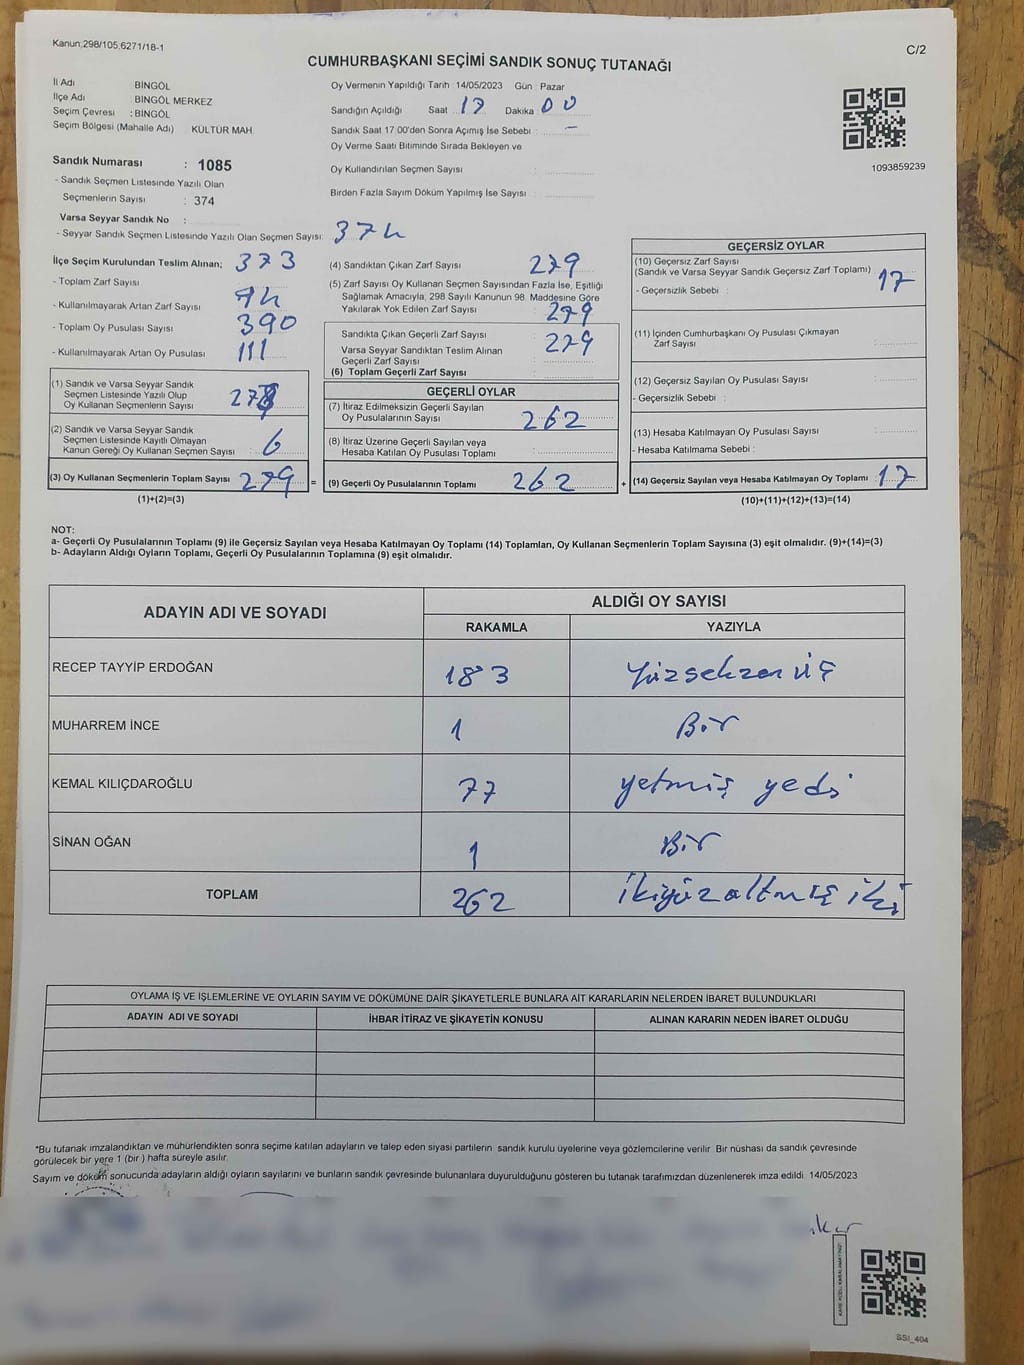 Kanun:298/105,6271/18-1
C/2
CUMHURBAŞKANI SEÇİMİ SANDIK SONUÇ TUTANAĞI
İl Adı : BİNGÖL
İlçe Adı : BİNGÖL MERKEZ
Seçim Çevresi : BİNGÖL
Seçim Bölgesi (Mahalle Adı) KÜLTÜR MAH.
Sandık Numarası : 1085
- Sandık Seçmen Listesinde Yazılı Olan
Seçmenlerin Sayısı : 374
Varsa Seyyar Sandık No :
- Seyyar Sandık Seçmen Listesinde Yazılı Olan Seçmen Sayısı: 374
Oy Vermenin Yapıldığı Tarih : 14/05/2023 Gün : Pazar
Sandığın Açıldığı Saat 17 Dakika 00
Sandık Saat 17.00'den Sonra Açımış İse Sebebi : -
Oy Verme Saati Bitiminde Sırada Bekleyen ve
Oy Kullandırılan Seçmen Sayısı :
Birden Fazla Sayım Döküm Yapılmış İse Sayısı :
1093859239
İlçe Seçim Kurulundan Teslim Alınan; 373
- Toplam Zarf Sayısı
- Kullanılmayarak Artan Zarf Sayısı 94
- Toplam Oy Pusulası Sayısı 390
- Kullanılmayarak Artan Oy Pusulası 111
(1) Sandık ve Varsa Seyyar Sandık
Seçmen Listesinde Yazılı Olup
Oy Kullanan Seçmenlerin Sayısı
(2) Sandık ve Varsa Seyyar Sandık
Seçmen Listesinde Kayıtlı Olmayan
Kanun Gereği Oy Kullanan Seçmen Sayısı : 6
(3) Oy Kullanan Seçmenlerin Toplam Sayısı 279 =
(1)+(2)=(3)
(4) Sandıktan Çıkan Zarf Sayısı 279
(5) Zarf Sayısı Oy Kullanan Seçmen Sayısından Fazla İse, Eşitliği
Sağlamak Amacıyla, 298 Sayılı Kanunun 98. Maddesine Göre
Yakılarak Yok Edilen Zarf Sayısı 279
Sandıkta Çıkan Geçerli Zarf Sayısı 279
Varsa Seyyar Sandıktan Teslim Alınan
Geçerli Zarf Sayısı
(6) Toplam Geçerli Zarf Sayısı
GEÇERLİ OYLAR
(7) İtiraz Edilmeksizin Geçerli Sayılan
Oy Pusulalarının Sayısı 262
(8) İtiraz Üzerine Geçerli Sayılan veya
Hesaba Katılan Oy Pusulası Toplamı
(9) Geçerli Oy Pusulalarının Toplamı 262 +
GEÇERSİZ OYLAR
(10) Geçersiz Zarf Sayısı
(Sandık ve Varsa Seyyar Sandık Geçersiz Zarf Toplamı) 17
- Geçersizlik Sebebi :
(11) İçinden Cumhurbaşkanı Oy Pusulası Çıkmayan
Zarf Sayısı :
(12) Geçersiz Sayılan Oy Pusulası Sayısı :
- Geçersizlik Sebebi :
(13) Hesaba Katılmayan Oy Pusulası Sayısı :
- Hesaba Katılmama Sebebi :
(14) Geçersiz Sayılan veya Hesaba Katılmayan Oy Toplamı : 17
(10)+(11)+(12)+(13)=(14)
NOT:
a- Geçerli Oy Pusulalarının Toplamı (9) ile Geçersiz Sayılan veya Hesaba Katılmayan Oy Toplamı (14) Toplamları, Oy Kullanan Seçmenlerin Toplam Sayısına (3) eşit olmalıdır. (9)+(14)=(3)
b- Adayların Aldığı Oyların Toplamı, Geçerli Oy Pusulalarının Toplamına (9) eşit olmalıdır.
ADAYIN ADI VE SOYADI ALDIĞI OY SAYISI
RAKAMLA YAZIYLA
RECEP TAYYİP ERDOĞAN 183 Yüzseksen üç
MUHARREM İNCE 1 Bir
KEMAL KILIÇDAROĞLU 77 yetmiş yedi
SİNAN OĞAN 1 Bir
TOPLAM 262 ikiyüz altmış iki
OYLAMA İŞ VE İŞLEMLERİNE VE OYLARIN SAYIM VE DÖKÜMÜNE DAİR ŞİKAYETLERLE BUNLARA AİT KARARLARIN NELERDEN İBARET BULUNDUKLARI
ADAYIN ADI VE SOYADI İHBAR İTİRAZ VE ŞİKAYETİN KONUSU ALINAN KARARIN NEDEN İBARET OLDUĞU
*Bu tutanak imzalandıktan ve mühürlendikten sonra seçime katılan adayların ve talep eden siyasi partilerin sandık kurulu üyelerine veya gözlemcilerine verilir. Bir nüshası da sandık çevresinde
görülecek bir yere 1 (bir ) hafta süreyle asılır.
Sayım ve döküm sonucunda adayların aldığı oyların sayılarını ve bunların sandık çevresinde bulunanlara duyurulduğunu gösteren bu tutanak tarafımızdan düzenlenerek imza edildi. 14/05/2023
SSI_404